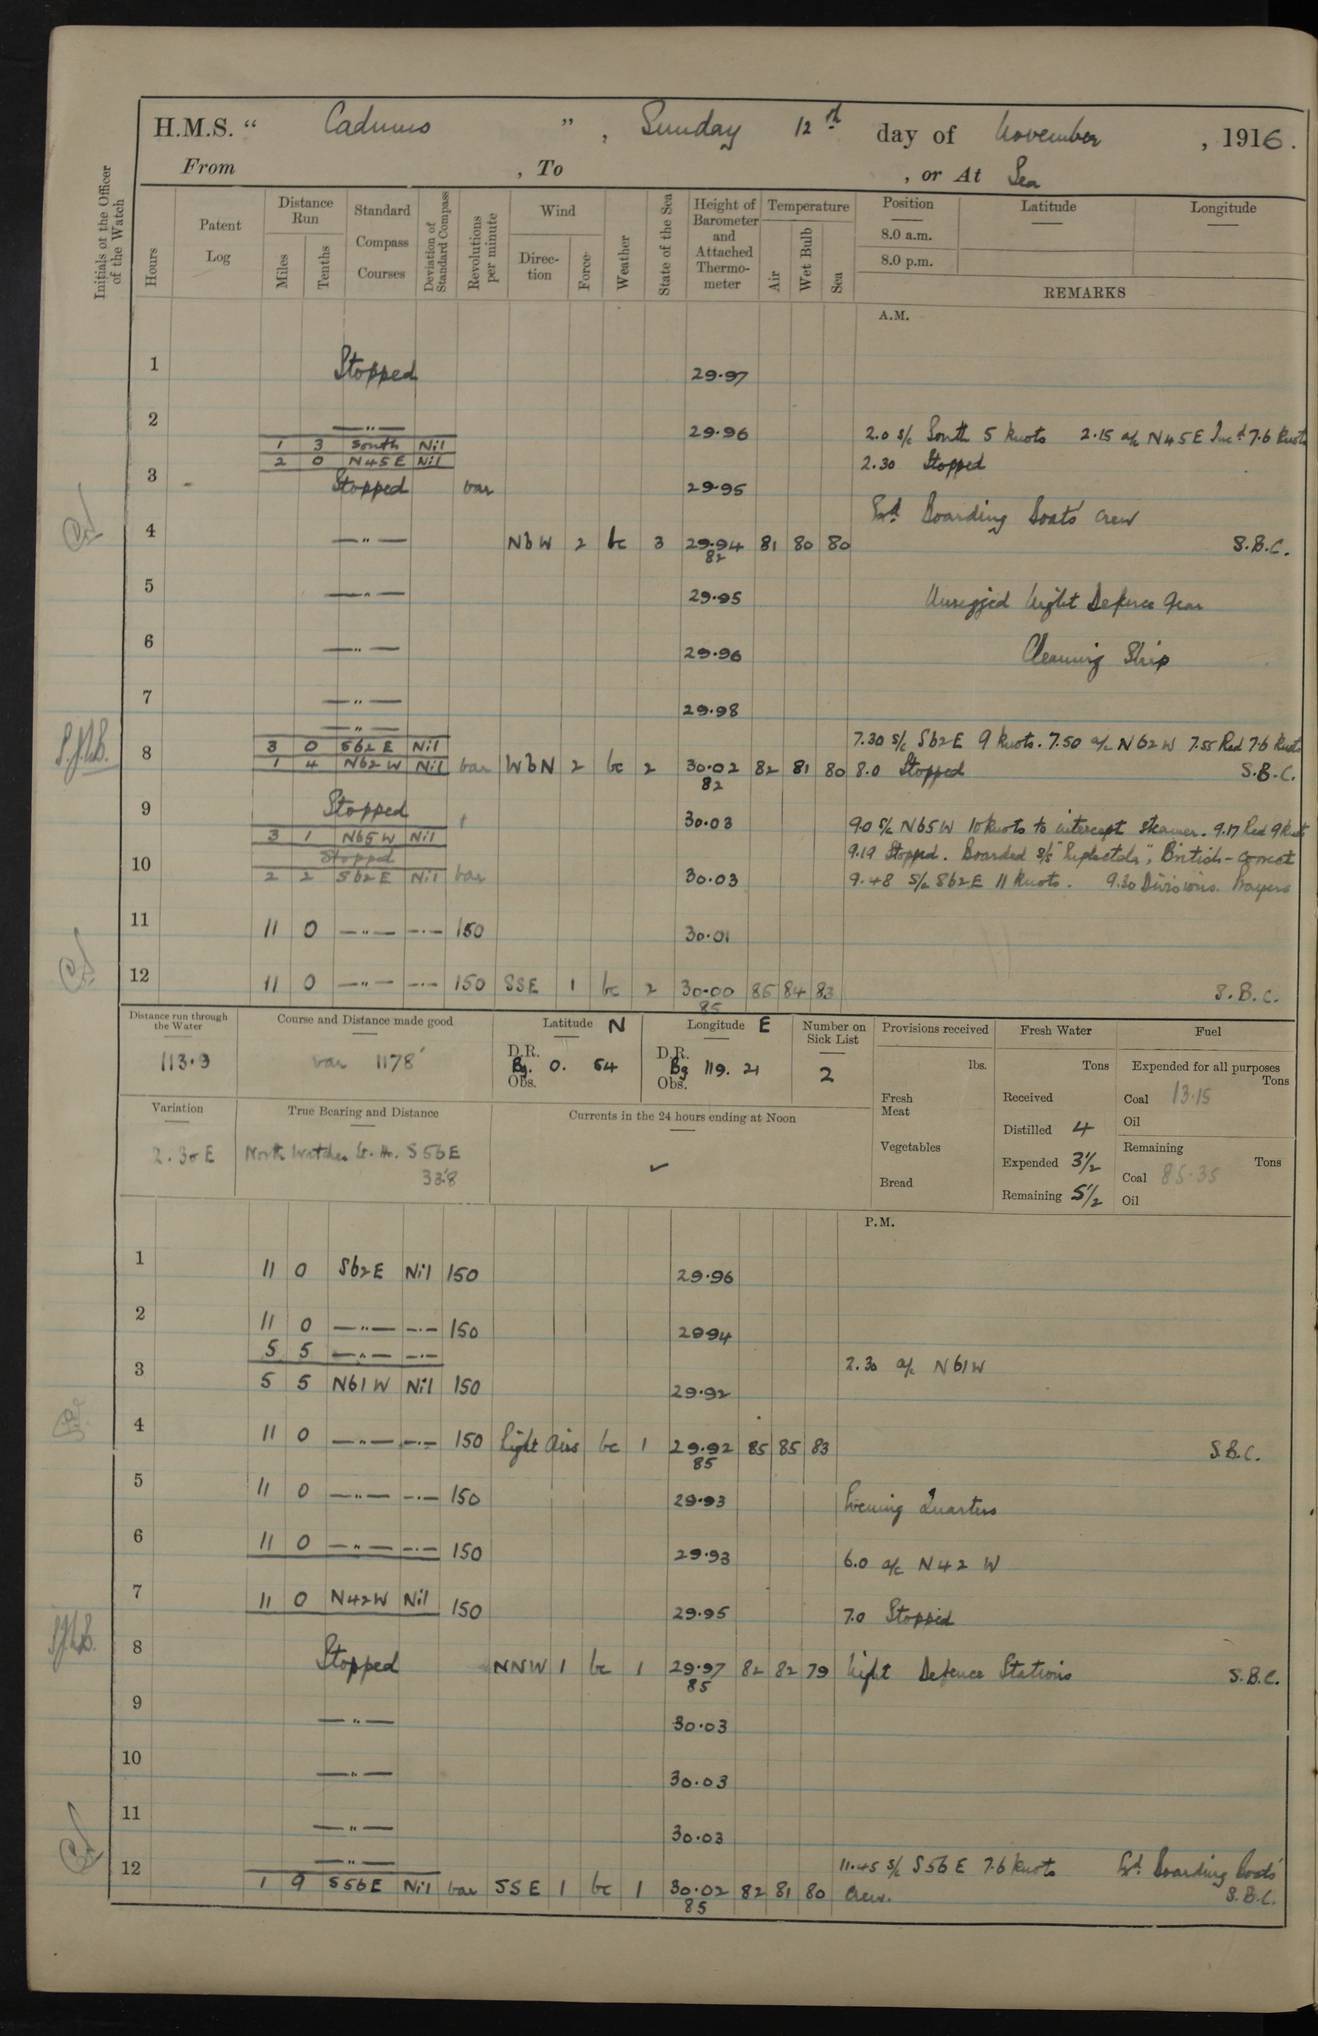 H.M.S. “ Cadmus ” , Sunday 12th day of November , 1916.
From , To , or At Sea
Initials of the Officer of the Watch
Hours
Patent Log
Distance Run
Miles
Tenths
Standard Compass Courses
Deviation of Standard Compass
Revolutions per minute
Wind
Direction
Force
Weather
State of the Sea
Height of Barometer and Attached Thermometer
Temperature
Air
Wet Bulb
Sea
Position Latitude Longitude
8.0 a.m.
8.0 p.m.
REMARKS
A.M.
1 Stopped 29.97
2 —"— 29.96 2.0 s/c South 5 knots 2.15 a/c N45E Incd 7.6 knots
1 3 South Nil
2 0 N45E Nil 2.30 Stopped
3 Stopped var 29.95
Exd Boarding Boats' Crew
4 —"— NbW 2 bc 3 29.94 81 80 80 S.B.C.
82
5 —"— 29.95 Unrigged Night Defence Gear
6 —"— 29.96 Cleaning Ship
7 —"— 29.98
—"—
3 0 S62E Nil 7.30 s/c S62E 9 knots. 7.50 a/c N62W 7.55 Red 7.6 knots
8 1 4 N62W Nil var WbN 2 bc 2 30.02 82 81 80 8.0 Stopped S.B.C.
82
9 Stopped 30.03 9.0 s/c N65W 10 knots to intercept steamer. 9.17 Red 9 knots
3 1 N65W Nil
Stopped 9.19 Stopped. Boarded S/S British - correct
10 2 2 S62E Nil var 30.03 9.48 s/c S62E 11 knots. 9.30 Divisions. Prayers
11 11 0 —"— —"— 150 30.01
12 11 0 —"— —"— 150 SSE 1 bc 2 30.00 85 84 83 S.B.C.
85
Distance run through the Water
113.9
Course and Distance made good
var 1178'
Latitude N
D.R.
Bg. 0. 54
Obs.
Longitude E
D.R.
Bg 119. 21
Obs.
Number on Sick List
2
Provisions received
lbs.
Fresh Meat
Vegetables
Bread
Fresh Water
Tons
Received
Distilled 4
Expended 3½
Remaining 5½
Fuel
Expended for all purposes
Tons
Coal 13.15
Oil
Remaining
Tons
Coal 85.35
Oil
Variation
2.30 E
True Bearing and Distance
North Watcher Lt. Ho. S56E
33.8
Currents in the 24 hours ending at Noon
✓
P.M.
1 11 0 S62E Nil 150 29.96
2 11 0 —"— —"— 150 29.94
5 5 —"— —"— 2.30 a/c N61W
3 5 5 N61W Nil 150 29.92
4 11 0 —"— —"— 150 Light Airs bc 1 29.92 85 85 83 S.B.C.
85
5 11 0 —"— —"— 150 29.93 Evening Quarters
6 11 0 —"— —"— 150 29.93 6.0 a/c N42 W
7 11 0 N42W Nil 150 29.95 7.0 Stopped
8 Stopped NNW 1 bc 1 29.97 82 82 79 Night Defence Stations S.B.C.
85
9 —"— 30.03
10 —"— 30.03
11 —"— 30.03
—"— 11.45 s/c S56E 7.6 knots Exd Boarding Boats'
12 1 9 S56E Nil var SSE 1 bc 1 30.02 82 81 80 Crew. S.B.C.
85